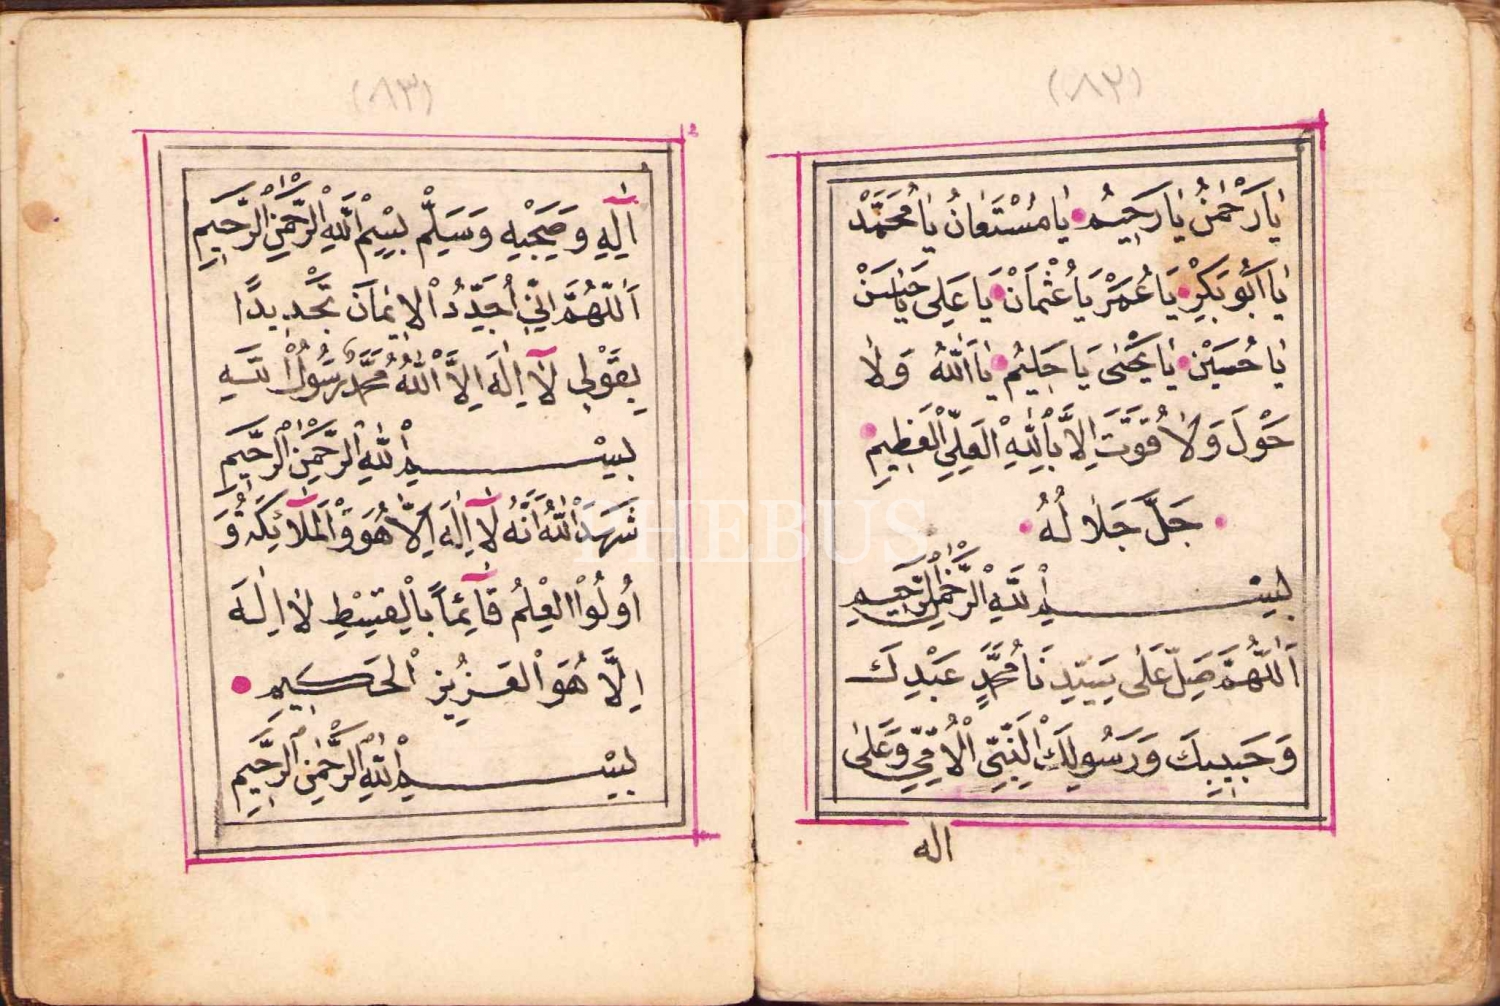 (٨٢)
يَا رَحْمٰنُ يَا رَحِيمُ يَا مُسْتَعَانُ يَا مُحَمَّدْ
يَا اَبُو بَكِرْ يَا عُمَرْ يَا عُثْمَانْ يَا عَلِى يَا حَسَنْ
يَا حُسَيْنْ يَا يَحْيٰى يَا حَلِيمُ يَا اَللّٰهُ وَلَا
حَوْلَ وَلَا قُوَّتَ اِلَّا بِاللّٰهِ الْعَلِيِّ الْعَظِيمِ
جَلَّ جَلَا لُهُ
بِسْمِ اللّٰهِ الرَّحْمٰنِ الرَّحِيمِ
اَللّٰهُمَّ صَلِّ عَلٰى سَيِّدِ نَا مُحَمَّدٍ عَبْدِكَ
وَحَبِيبِكَ وَرَسُولِكَ النَّبِيِّ الْاُمِّيِّ وَعَلٰى
اله
(٨٣)
اٰلِهِ وَصَحْبِهِ وَسَلِّمْ بِسْمِ اللّٰهِ الرَّحْمٰنِ الرَّحِيمِ
اَللّٰهُمَّ اِنِّي اُجَدِّدُ الْاِيمَانَ تَجْدِيدًا
بِقَوْلِي لَآ اِلٰهَ اِلَّا اللّٰهُ مُحَمَّدٌ رَسُولُ اللّٰهِ
بِسْمِ اللّٰهِ الرَّحْمٰنِ الرَّحِيمِ
شَهِدَ اللّٰهُ اَنَّهُ لَآ اِلٰهَ اِلَّا هُوَ وَالْمَلَآئِكَةُ وَ
اُولُوا الْعِلْمُ قَآئِمًا بِالْقِسْطِ لَا اِلٰهَ
اِلَّا هُوَ الْعَزِيزُ الْحَكِيمِ
بِسْمِ اللّٰهِ الرَّحْمٰنِ الرَّحِيمِ
PHEBUS